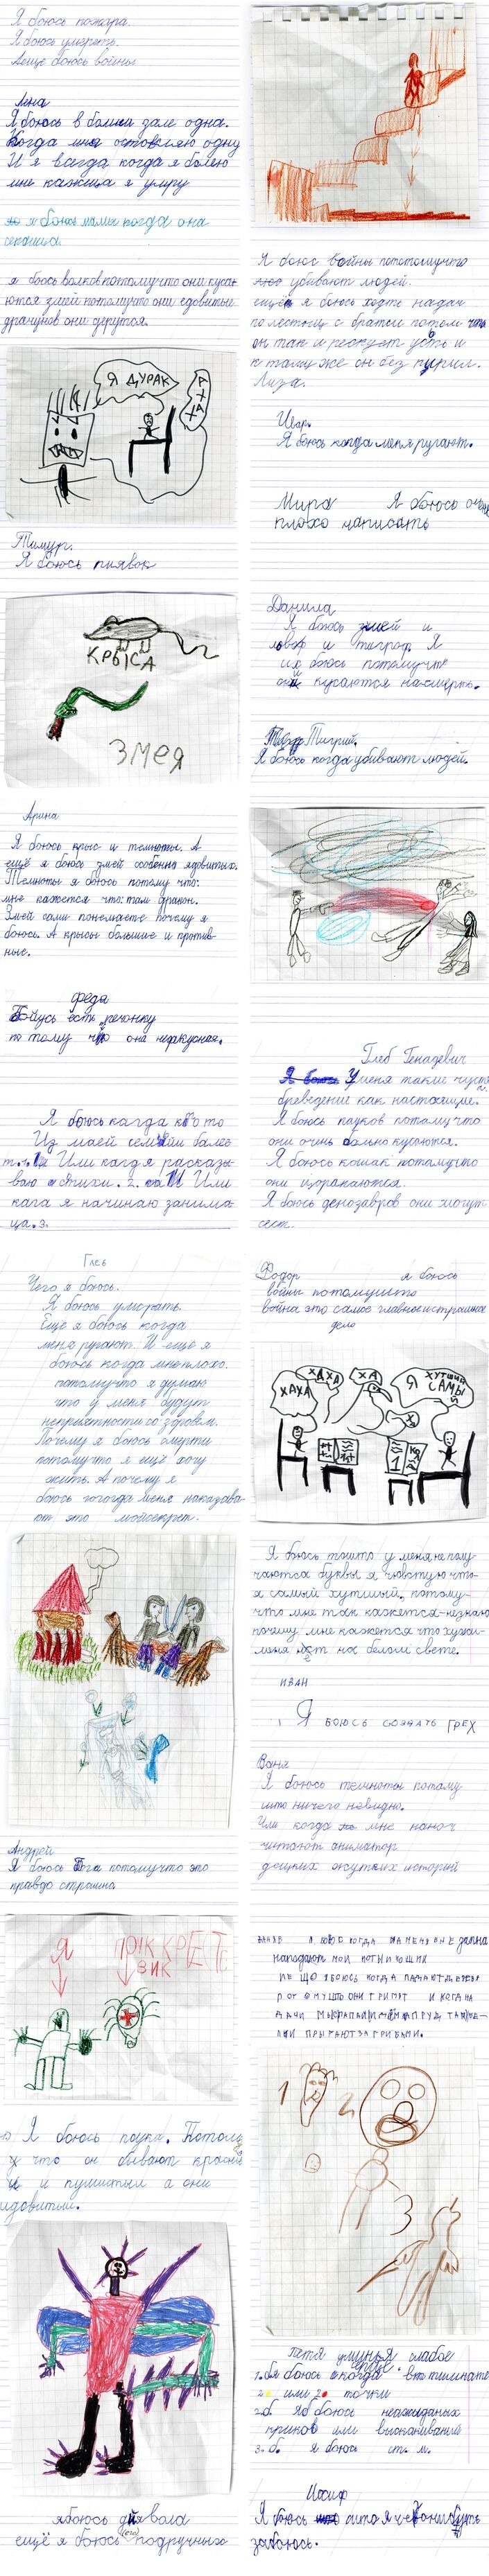 Я боюсь пожара.
Я боюсь умереть.
Аеще боюсь войны
Анна
Я боюсь в болши зале одна.
Когда мня оставляю одну
И я всегда когда я болею
мне кажица я умру
я боюс мамы когда она
я боюсь волков потомучто они кусаи
ются змей потомучто они едовитые
драчунов они дерутся.
Я ДУРАК
АХАХ
Тимур.
Я боюсь пиявок
КРЫСА
ЗМЕЯ
Арина
Я боюсь крыс и темноты. А
ещё я боюсь змей особенно ядовитых.
Темноты я боюсь потому что:
мне кажется что: там дракон.
Змей сами понемаете почему я
боюсь. А крысы большие и против-
ные.
Федя
Боюсь есть печонку
по тому что она невкусная.
Я боюсь кагда кто то
Из маей семьи болеет
Или кагдя расказы-
ваю стихи. 2. Или
кага я начинаю занима-
ца. 3.
Глеб
Чего я боюсь.
Я боюсь умерать.
Ещё я боюсь когда
меня ругают. И ещё я
боюсь когда мне плохо.
потомучто я думаю
что у меня будут
неприятности со здровем.
Почему я боюсь смерти
потомучто я ещё хочу
жить. А почему я
боюсь когда меня наказава-
ют это мойсекрет.
Андрей
Я боюсь Бога потомучто это
правдо страшно
Я
ПАУК КРЕСТО
ВИК
Я боюсь паука. Потому
что он бывают красны
и пушистыи а они
идовитыи.
ябоюсь дяявола
ещё я боюсь (его) подручных
Я боюс войны потомучто
убивают людей.
ещё я боюсь ходте на дач
по лестниц с братом потом что
он так и рескует усть и
к тамуже он без перил.
Лиза.
Игар.
Я боюсь когда меня ругают.
Мира Я боюсь очень
плохо написать
Данила
Я боюсь змей и
львоф и тигроф. Я
их боюсь потомучто
они кусаются насмерть.
Тигрий.
Я боюсь когда убивают людей.
Глеб Генадевич
У меня такие чуст
бреведение как настоящие.
Я боюсь пауков потаму что
они очень больно кусаются.
Я боюсь кошак потомучто
они царапаются.
Я боюсь денозавров они могут
сест.
Фодор я боюсь
войны потомушто
война это самое главное и страшное
дело
ХАХА
ХАХА
ХА
Я ХУТШИЙ
САМЫЙ
Я боюсь тошто у меня не полу-
чаются буквы я чювствую что
я самый хутшый, потому-
что мне так кажется-незнаю
почиму мне кажется что хужи
меня нет на белом свете.
ИВАН
Я БОЮСЬ СОЗДАТЬ ГРЕХ
Ваня
Я боюсь темноты потаму
што ничего невидно.
Или когда мне наноч
читают аниматор
децких жутких историй
1
2
3
Петя уминья слабое
серце.
1. я боюсь когда втыкнате
или точки
2. б. Я боюсь неожиданых
криков или выскакиваний
3. б. я боюсь ст. м.
Иосиф
Я боюсь што я чегонибуть
забоюсь.